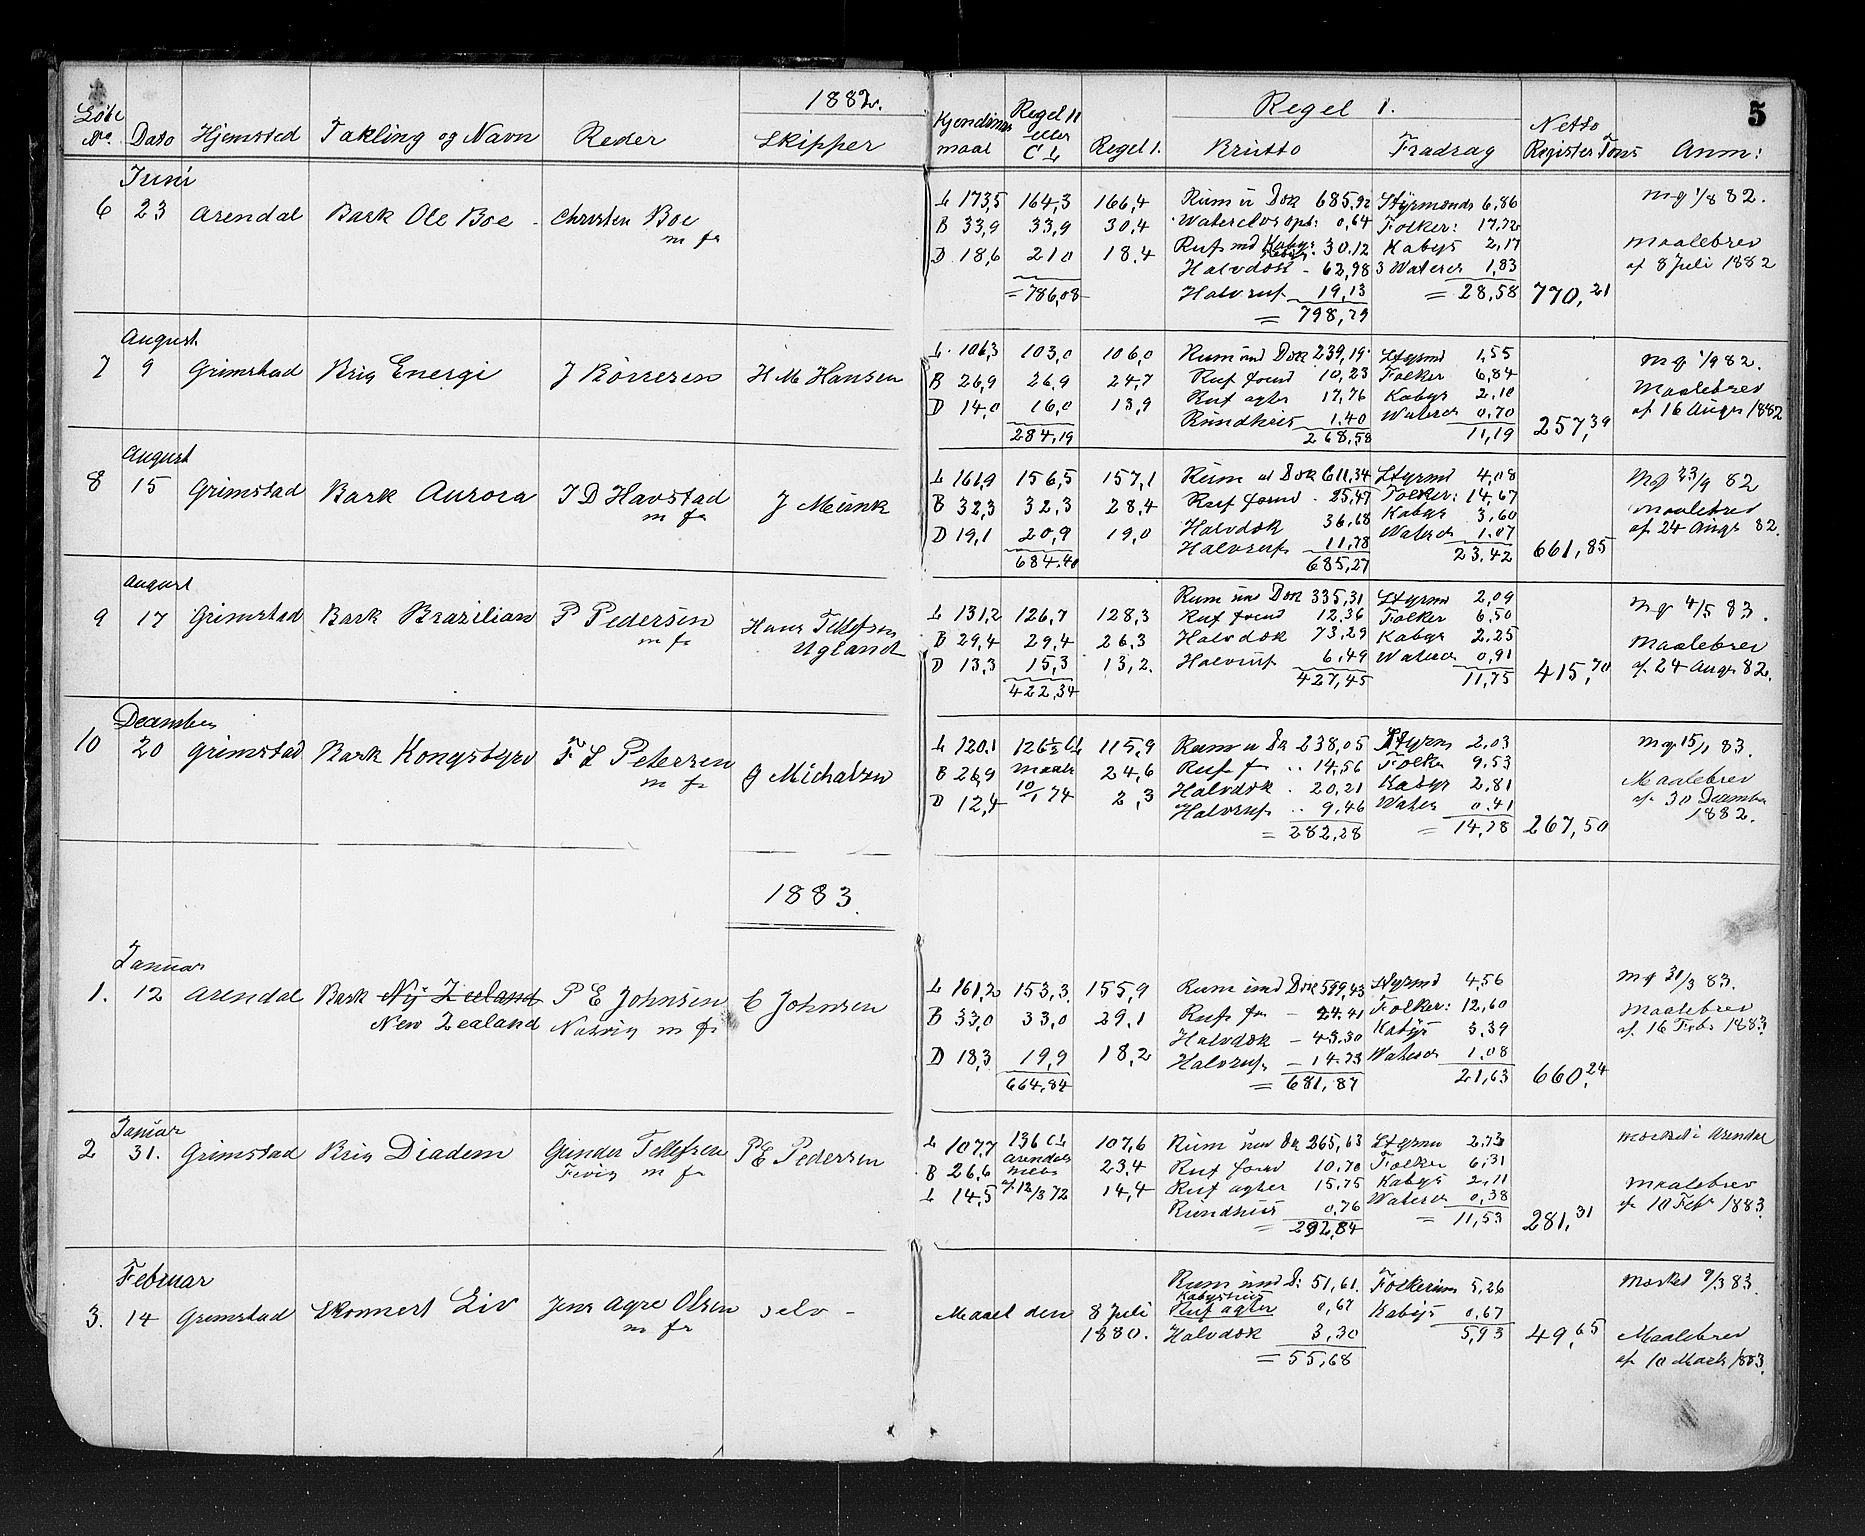 1882.
Regel 1.
5
Løbe No. Dato Hjemsted Takling og Navn Reder Skipper Kjendings maal Regel II eller CL Regel 1. Brutto Fradrag Netto Register Tons Anm:
Juni
6 23 Arendal Bark Ole Boe - Christen Boe
m fr
L 173,5 164,3 166,4 Rum u Dæk 685,92 Styrmands 6,86 mg 1/8 82.
B 33,9 33,9 30.4 Waterclos opb: 0,64 Folker: 17,72
D 18,6 210 18.4 Ruf md Kabys: 30,12 Kabys 2,17 Maalebrev
Halvdæk - 62,98 3 Waterc 1,83 af 8 Juli 1882
= 786,08 Halvruf 19,13 = 28,58 770,21
= 798,79
August
7 9 Grimstad Brig Energi J Börresen H M Hansen
L. 106,3 103,0 106,0 Rum und Dæk 239,19 Styrmd 1,55 mg 1/9 82.
B 26,9 26,9 24,7 Ruf forud 10,23 Folker 6,84 Maalebrev
D 14,0 16,0 13,9 Ruf agter 17,76 Kabys 2,10 af 16 Augs 1882
Rundhuis 1.40 Waterc 0,70
284,19 268,58 11,19 257,39
August
8 15 Grimstad Bark Aurora J D Havstad J Munk
m fr
L 161,9 156,5 157,1 Rum u Dæk 611,34 Styrmd 4,08 Mg 23/9 82
B 32,3 32,3 28,4 Ruf forud - 25,47 Folker: 14,67 Maalebrev
D 19,1 20,9 19,0 Halvdæk 36,68 Kabys 3,60 af 24 Augs 82.
Halvruf 11,78 Waterc 1.07
684.40 685,27 23,42 661,85
August
9 17 Grimstad Bark Brazilian P Pedersen Hans Tellefsen
m fr Ugland
Rum und Dæk 335,31 Styrmd 2,09
L 131,2 126,7 128,3 Ruf forud 12,36 Folker 6,50 mg 4/5 83.
B 29,4 29,4 26,3 Halvdæk 73,29 Kabys 2,25 Maalebrev
D 13,3 15,3 13,2. Halvruf 6,49 Waterc 0,91 af 24 Augs 82.
422,34 427,45 11,75 415,70
December
10 20 Grimstad Bark Kongsbyrd F L Petersen J Michalsen
m fr
L 120.1 126½ CL 115,9 Rum u Dk 238,05 Styrm 2,03 mg 15/1 83.
B 26,9 maalt 24,6 Ruf f .. 14,56 Folke 9,53 Maalebrev
D 12,4 10/1 74 2,3 Halvdæk . 20,21 Kabys 2,81 af 30 December
Halvruf .. 9,46 Water 0.41 1882.
= 282,28 = 14,78 267,50
1883.
Januar
1. 12 Arendal Bark Ny Zeeland P E Johnsen C Johnsen
New Zealand Narvig m fr
L 161,2 153,3 155,9 Rum und Dæk 599,43 Styrmd 4,56 mg 31/3 83.
B 33,0 33,0 29.1 Ruf for - 24.41 Folker: 12,60 Maalebrev
Halvdæk - 43.30 Kabys 3,39 af 16 Febr 1883
D 18,3 19,9 18,2 Halvruf - 14.73 Waterc 1,08
664,84 = 681,87 21,63 660,24
Januar
2 31. Grimstad Brig Diadem Gunder Tellefsen P E Pedersen
Fevig m fr
L 107,7 136 CL 107,6 Rum und Dk 265,63 Styrm 2.73 mærket i Arendal
B 26,6 Arendals 23.4 Ruf forud 10.70 Folker 6,31
L 14,5 af 12/3 72 14,4 Ruf agter 15.75 Kabys 2,11 Maalebrev
Rundhuis 0,76 Waterc 0,38 af 10 Feb 1883.
= 292,84 = 11,53 281,31
Februar
3. 14 Grimstad Skonnert Liv Jens Agre Olsen selv -
m fr
Rum und D: 51,61. Folkerum 5,26 Mærket 9/3 83.
Kabyshus
Maalt den 8 Juli Ruf agter 0,67 Kabys 0,67
1880. Halvdæk 3,30 5,93 49,65 Maalebrev
= 55,68 af 10 Marts 1883.